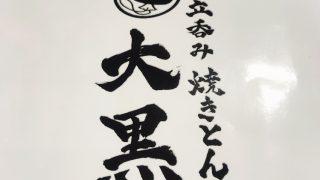 立呑み 焼きとん
大黒